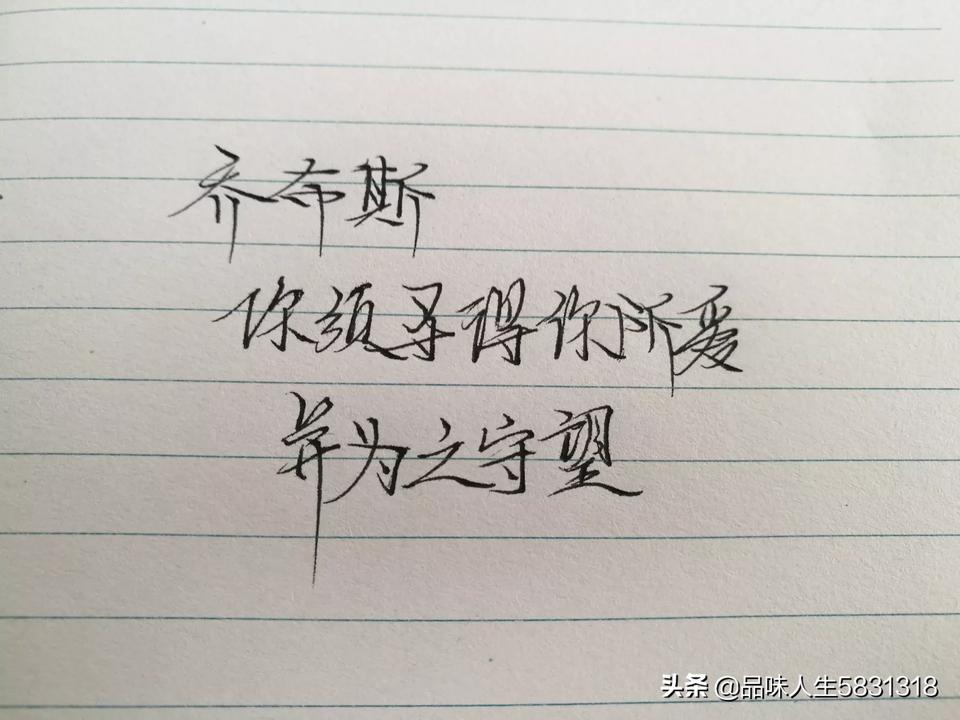 乔布斯
你须寻得你所爱
并为之守望
头条 @品味人生5831318